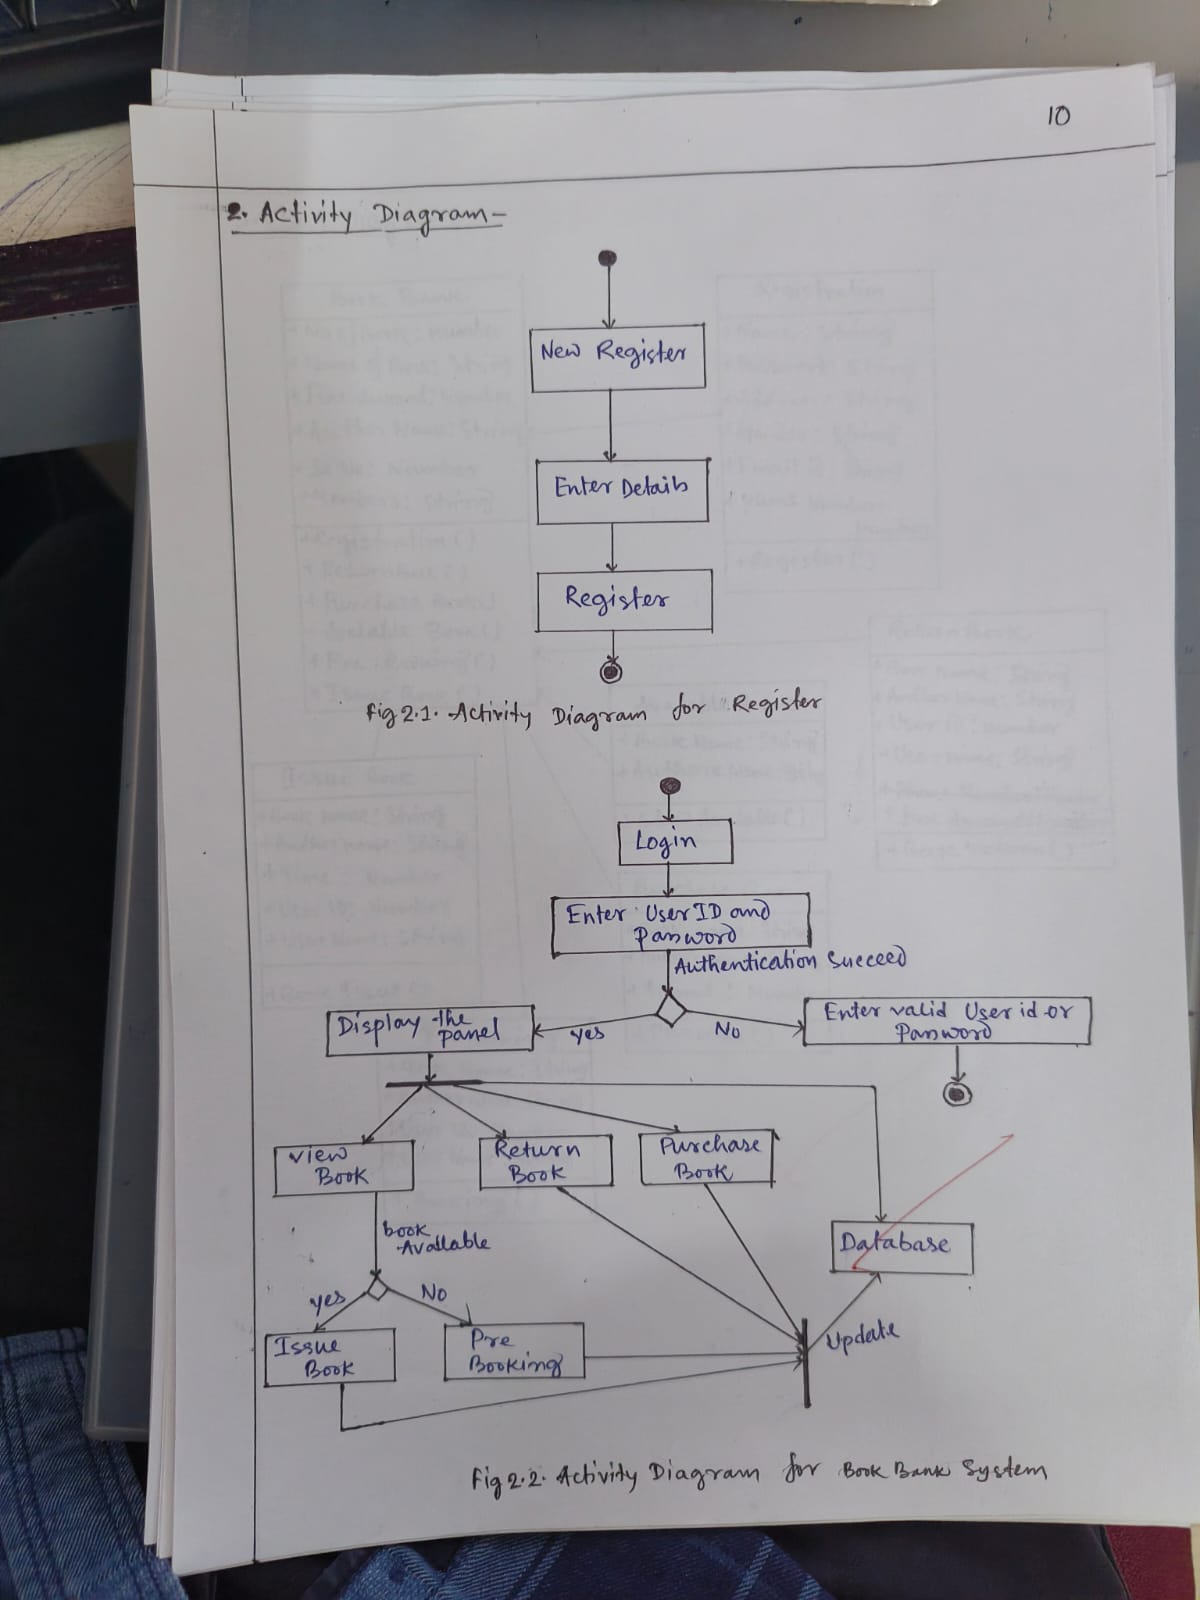 10
2. Activity Diagram-
New Register
Enter Details
Register
Fig 2.1. Activity Diagram for Register
Login
Enter User ID and
Password
Authentication Succeed
Display the
panel
yes
No
Enter valid User id or
Password
View
Book
Return
Book
Purchase
Book
book
Available
Database
yes
No
Issue
Book
Pre
Booking
Update
Fig 2.2. Activity Diagram for Book Bank System